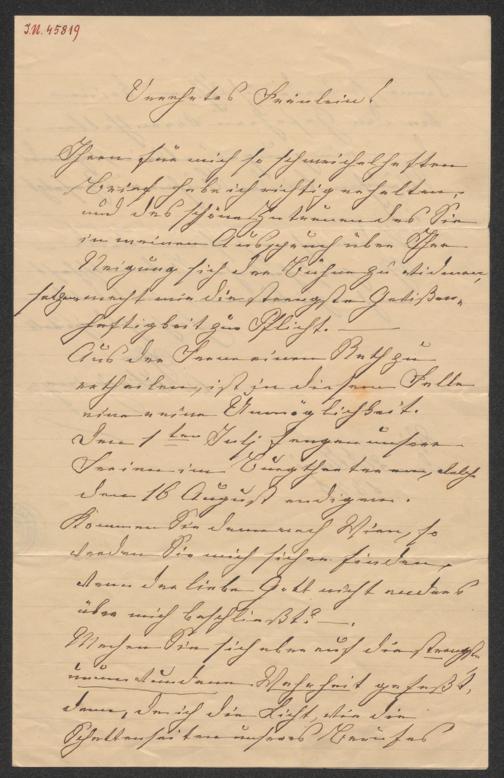 I.N. 45819
Verehrtes Fräulein!
Ihren für mich so schmeichelhaften
Brief habe ich richtig erhalten,
und das schöne Zutrauen das Sie
in meinen Ausspruch über Ihre
Neigung sich der Bühne zu widmen,
setzen macht mir die strengste Gewißen-
haftigkeit zur Pflicht. —
Aus der Ferne einen Rath zu
ertheilen, ist in diesem Falle
eine reine Unmöglichkeit.
Den 1ten Juli fangen unsere
Ferien im Burgtheater an, welche
den 16 August endigen.
Kommen Sie dann nach Wien, so
werden Sie mich sicher finden,
wenn der liebe Gott nicht anders
über mich beschließt! —.
Machen Sie sich aber auf die strengste
unumwundene Wahrheit gefaßt,
denn, da ich die Licht, wie die
Schattenseiten unseres Berufes